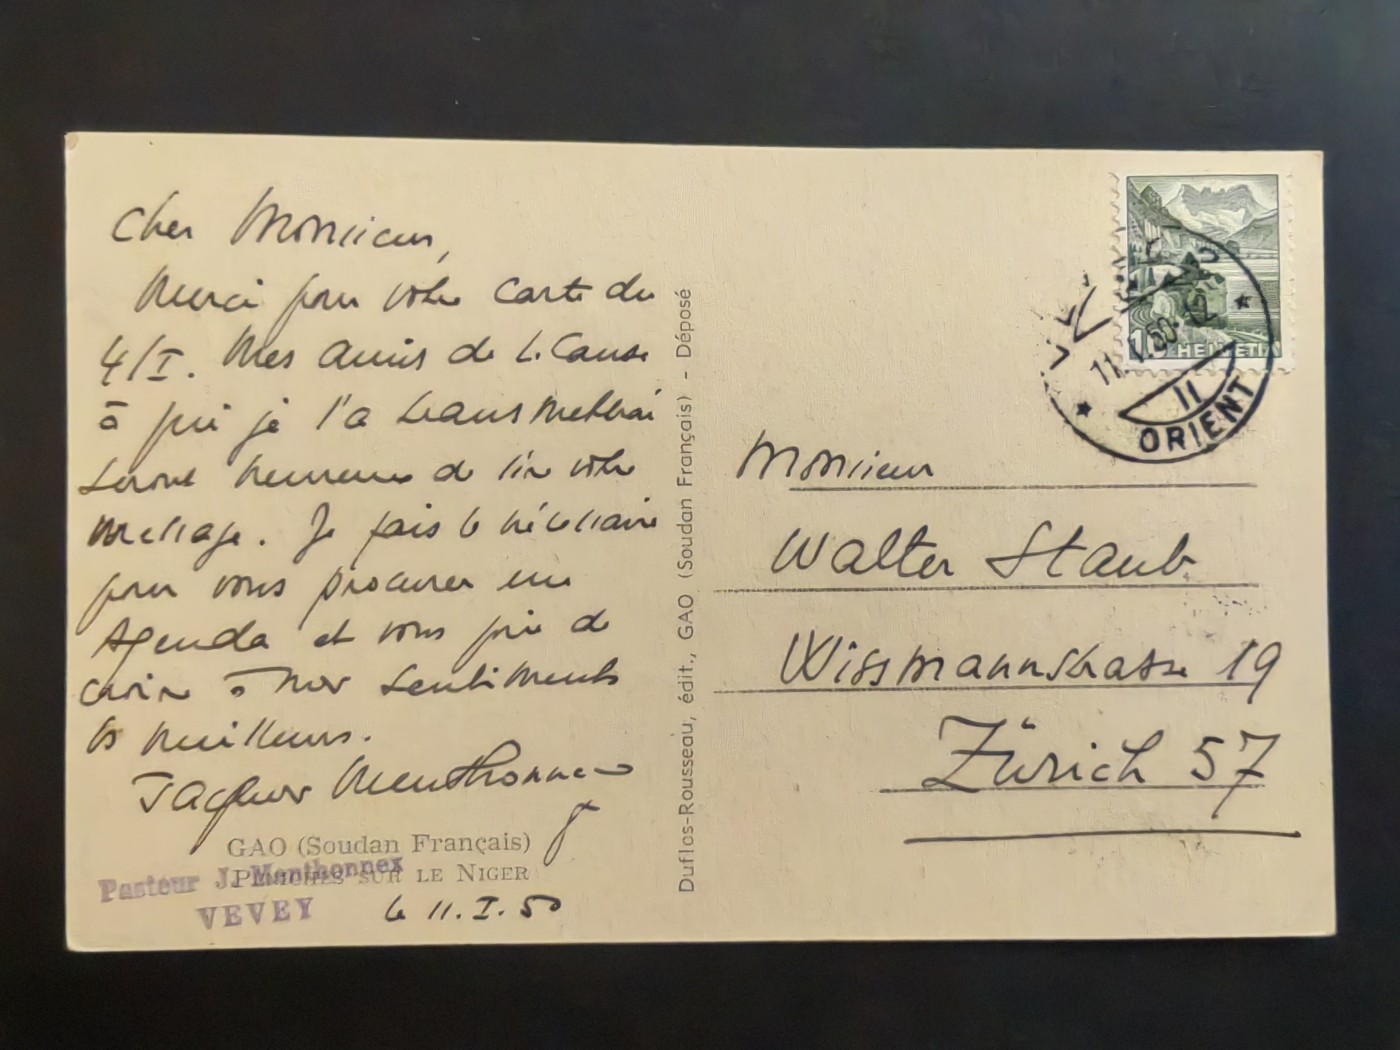 Cher Monsieur,
Merci pour votre carte du
4/I. Mes amis de la Cause
à qui je l'a transmettrai
seront heureux de lire votre
message. Je fais le nécessaire
pour vous procurer un
Agenda et vous prie de
croire à nos sentiments
les meilleurs.
Jacques Menthonnex
GAO (Soudan Français)
Péniches sur le Niger
Pasteur J. Menthonnex
VEVEY
le 11.I.50
Duflos-Rousseau, édit., GAO (Soudan Français) - Déposé
HELVETIA
VEVEY
11.I.50-12
II
ORIENT
Monsieur
Walter Staub
Wissmannstrasse 19
Zürich 57